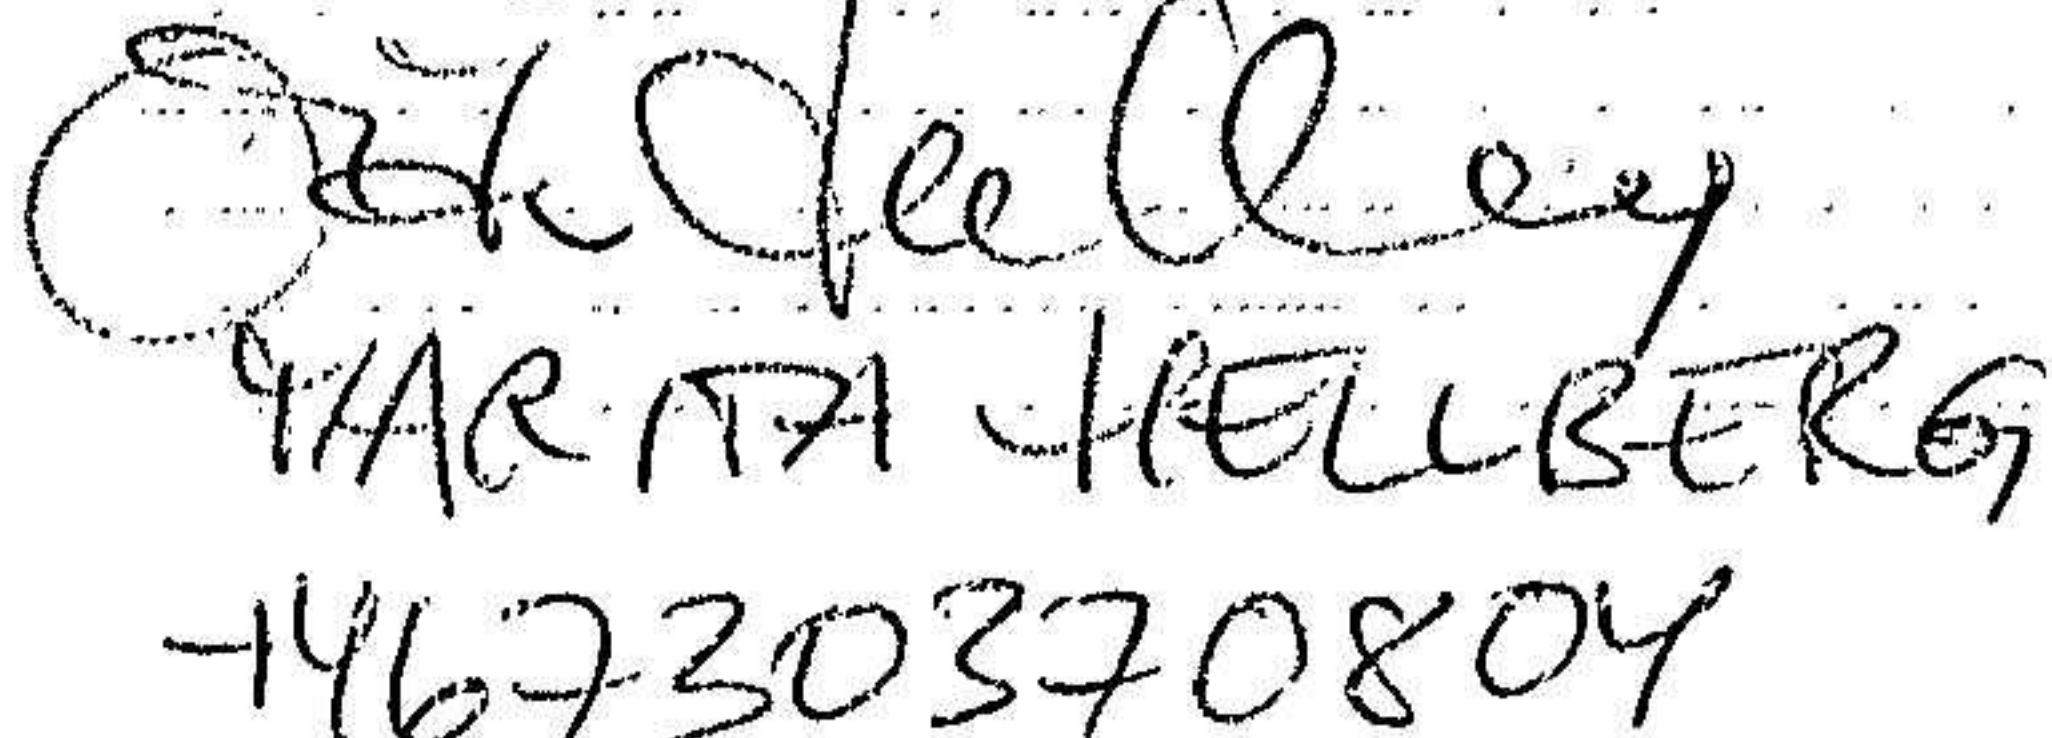 MARITA HELLBERG
+46730370804